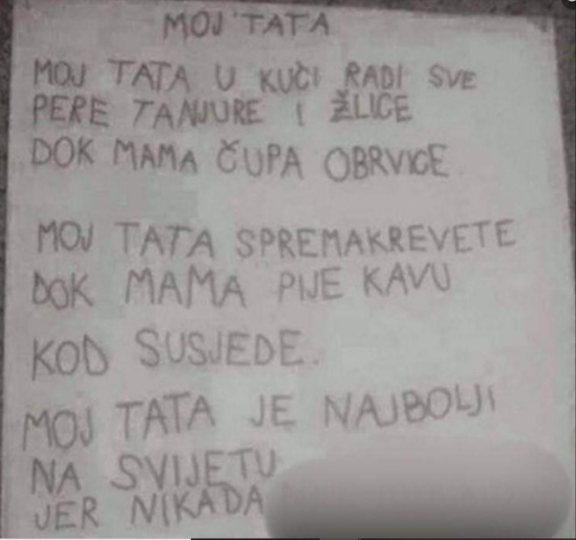 MOJ TATA
MOJ TATA U KUČI RADI SVE
PERE TANJURE I ŽLICE
DOK MAMA ČUPA OBRVICE.
MOJ TATA SPREMAKREVETE
DOK MAMA PIJE KAVU
KOD SUSJEDE.
MOJ TATA JE NAJBOLJI
NA SVIJETU
JER NIKADA